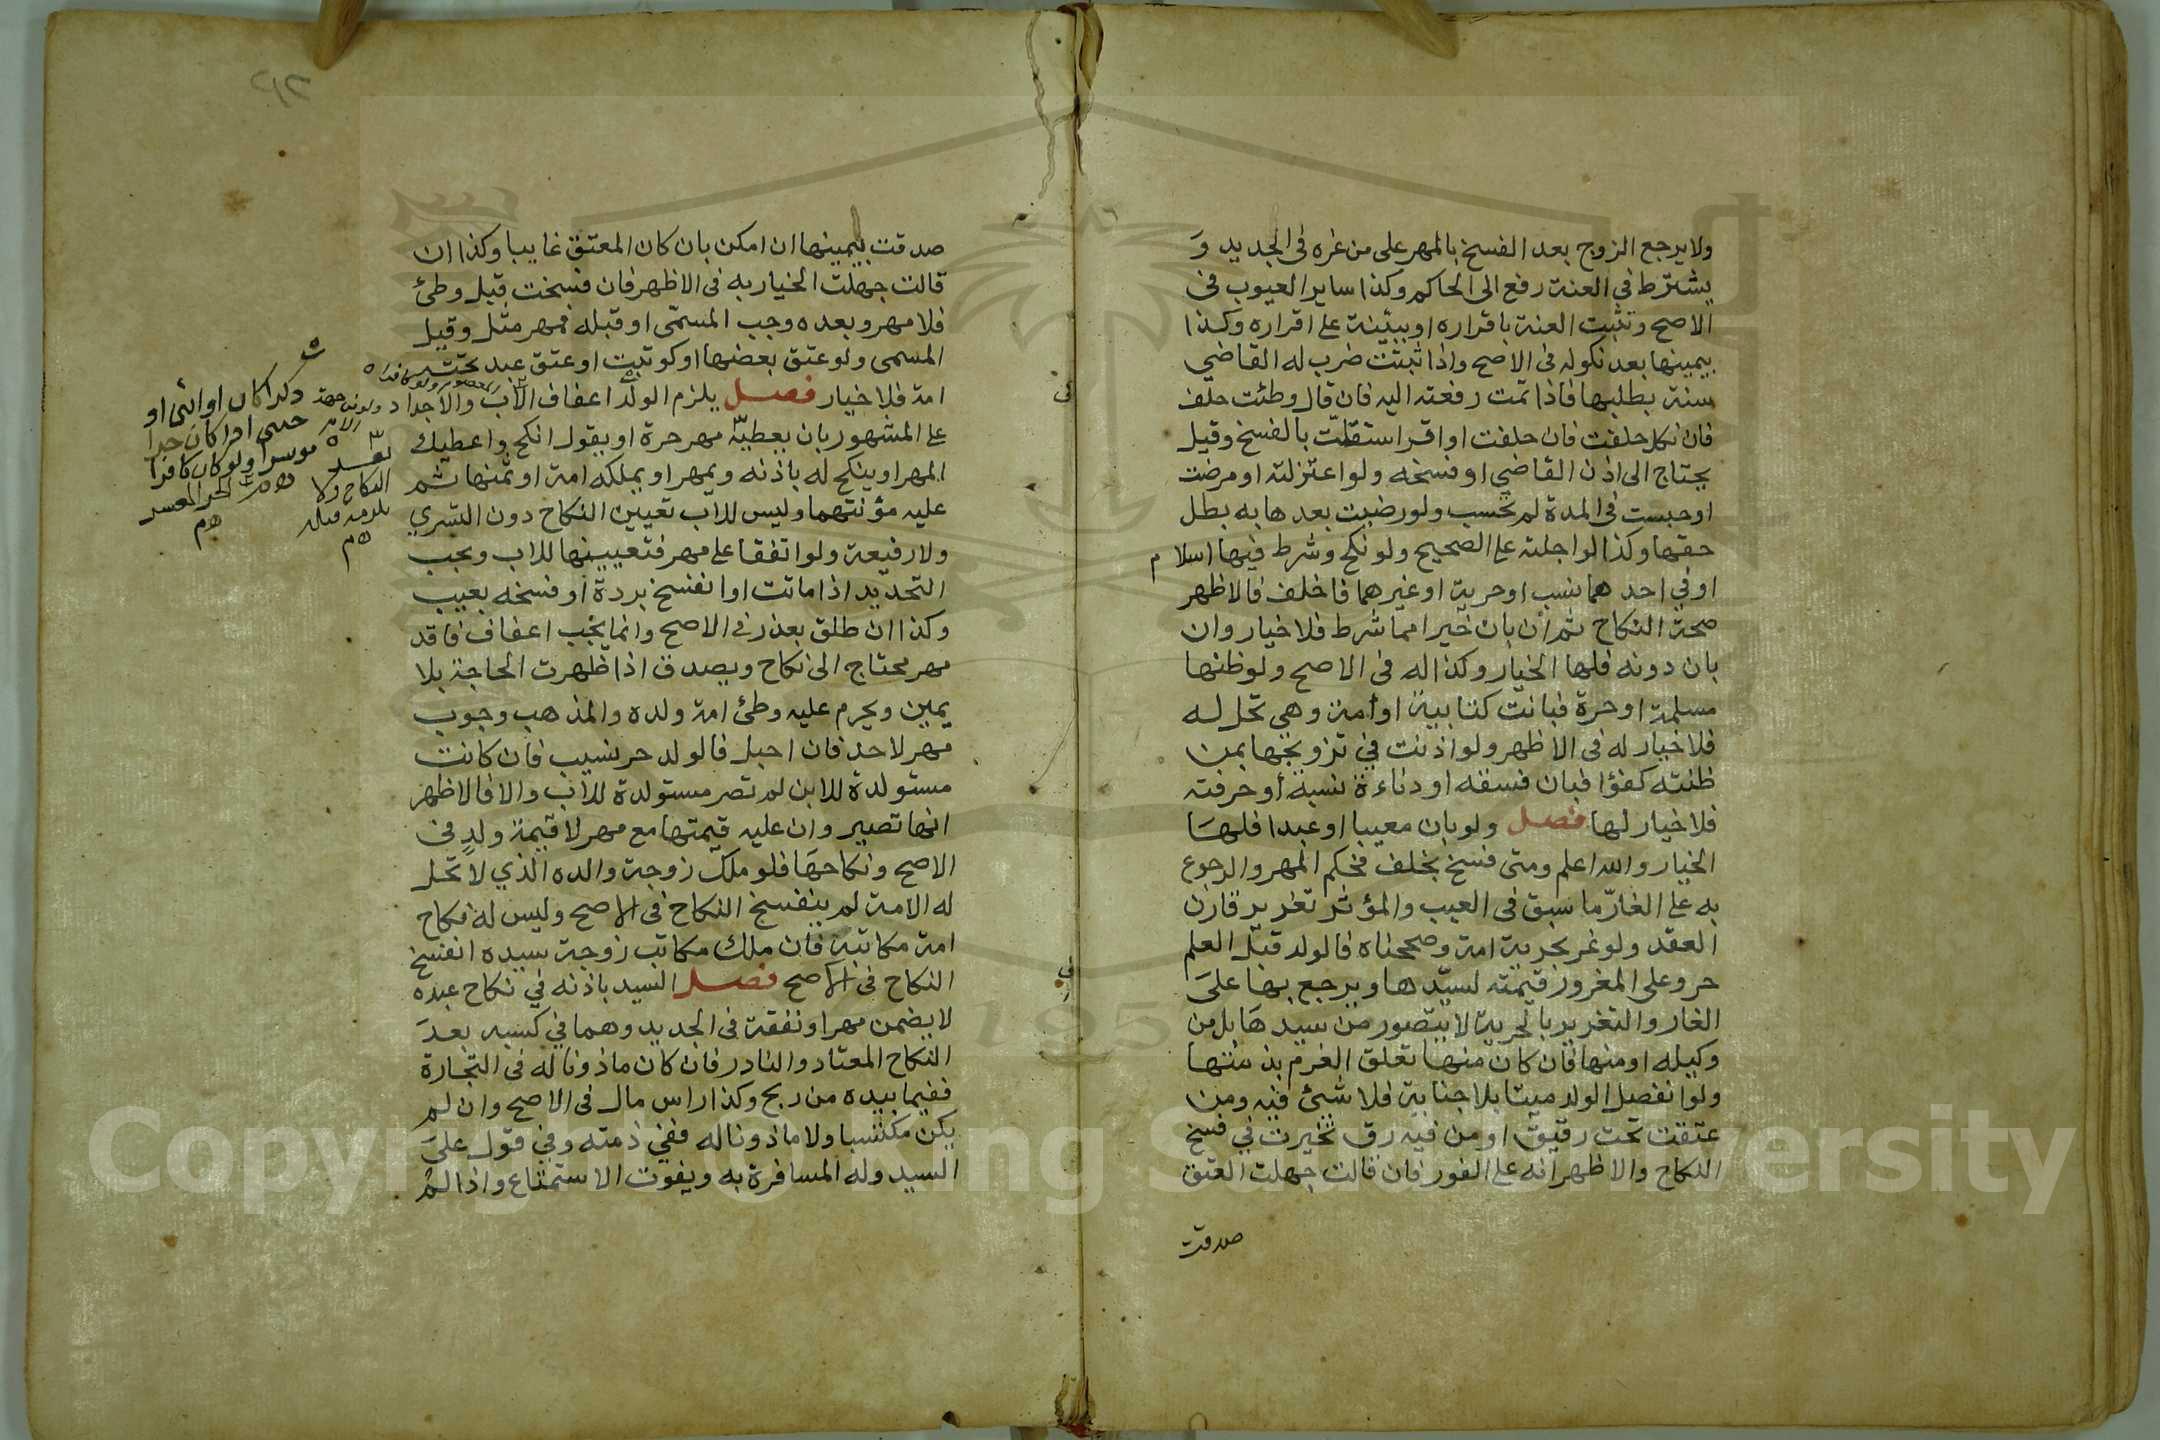 ولا يرجع الزوج بعد الفسخ بالمهر على من غره في الجديد و
يشترط في العنة رفع الى الحاكم وكذا ساير العيوب في
الاصح وتثبت العنة باقراره او ببينة على اقراره وكذا
بيمينها بعد نكوله في الاصح واذا ثبتت ضرب له القاضي
سنة بطلبها فاذا تمت رفعته اليه فان قال وطئت حلف
فان نكل حلفت فان حلفت او اقر استقلت بالفسخ وقيل
يحتاج الى اذن القاضي او فسخه ولو اعتزلته او مرضت
او حبست في المدة لم تحسب ولو رضيت بعدها به بطل
حقها وكذا لو اجلته على الصحيح ولو نكح وشرط فيها اسلام
او في احدهما نسب او حرية او غيرهما فاخلف فالاظهر
صحة النكاح ثم ان بان خيرا مما شرط فلا خيار وان
بان دونه فلها الخيار وكذا له في الاصح ولو ظنها
مسلمة او حرة فبانت كتابية او امة وهي تحل له
فلا خيار له في الاظهر ولو اذنت في تزويجها بمن
ظنته كفؤا فبان فسقه او دناءة نسبه او حرفته
فلا خيار لها فصل ولو بان معيبا او عبدا فلها
الخيار والله اعلم ومتى فسخ بخلف فحكم المهر والرجوع
به على الغار ما سبق في العيب والمؤثر تغرير قارن
العقد ولو غر بحرية امة وصححناه فالولد قبل العلم
حر وعلى المغرور قيمته لسيدها ويرجع بها على
الغار والتغرير بالحرية لا يتصور من سيدها بل من
وكيله او منها فان كان منها تعلق الغرم بذمتها
ولو انفصل الولد ميتا بلا جناية فلا شئ فيه ومن
عتقت تحت رقيق او من فيه رق تخيرت في فسخ
النكاح والاظهر انه على الفور فان قالت جهلت العتق
صدقت
٢١٢
صدقت بيمينها ان امكن بان كان المعتق غايبا وكذا ان
قالت جهلت الخيار به في الاظهر فان فسخت قبل وطئ
فلا مهر وبعده وجب المسمى او قبله فمهر مثل وقيل
المسمى ولو عتق بعضها او كوتبت او عتق عبد تحته
امة فلا خيار فصل يلزم الولد اعفاف الاب والاجداد
على المشهور بان يعطيه مهر حرة او يقول انكح واعطيك
المهر او ينكح له باذنه ويمهر او يملكه امة او ثمنها ثم
عليه مؤنتهما وليس للاب تعيين النكاح دون التسري
ولا رفيعة ولو اتفقا على مهر فتعيينها للاب ويجب
التجديد اذا ماتت او انفسخ بردة او فسخه بعيب
وكذا ان طلق بعذر في الاصح وانما يجب اعفاف فاقد
مهر محتاج الى نكاح ويصدق اذا ظهرت الحاجة بلا
يمين ويحرم عليه وطئ امة ولده والمذهب وجوب
مهر لا حد فان احبل فالولد حر نسيب فان كانت
مستولدة للابن لم تصر مستولدة للاب والا فالاظهر
انها تصير وان عليه قيمتها مع مهر لا قيمة ولد في
الاصح ونكاحها فلو ملك زوجة والده الذي لا تحل
له الامة لم ينفسخ النكاح في الاصح وليس له نكاح
امة مكاتبه فان ملك مكاتب زوجة سيده انفسخ
النكاح في الاصح فصل السيد باذنه في نكاح عبده
لا يضمن مهرا ونفقة في الجديد وهما في كسبه بعد
النكاح المعتاد والنادر فان كان ماذونا له في التجارة
ففيما بيده من ربح وكذا راس مال في الاصح وان لم
يكن مكتسبا ولا ماذونا له ففي ذمته وفي قول على
السيد وله المسافرة به ويفوت الاستمتاع واذا لم
ذكرا كان او انثى او
موسرا ولو كان كافرا
الحر المعسر
بعد
النكاح ولا
يلزمه قبله
Copyright © King Saud University